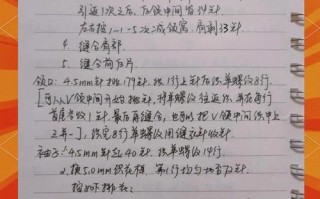 引返1次之后,后领中间留34针
左右按1-1-5次减领窝,肩剩33针
4. 缝合肩部
5. 缝合前后片
领口:4.5mm针挑179针,织1行上针后织单螺纹8行
[可从V领中间开始挑针,将单螺纹往返织,并在每行
首尾各收1针,最后再缝合,也可以把V领中间织中上
3并一],织完8行单螺纹用缝衣针收针
袖子:4.5mm针起40针,织单螺纹14行
2.换5.0mm织花样,第1行均匀加至72针
按如下排花: